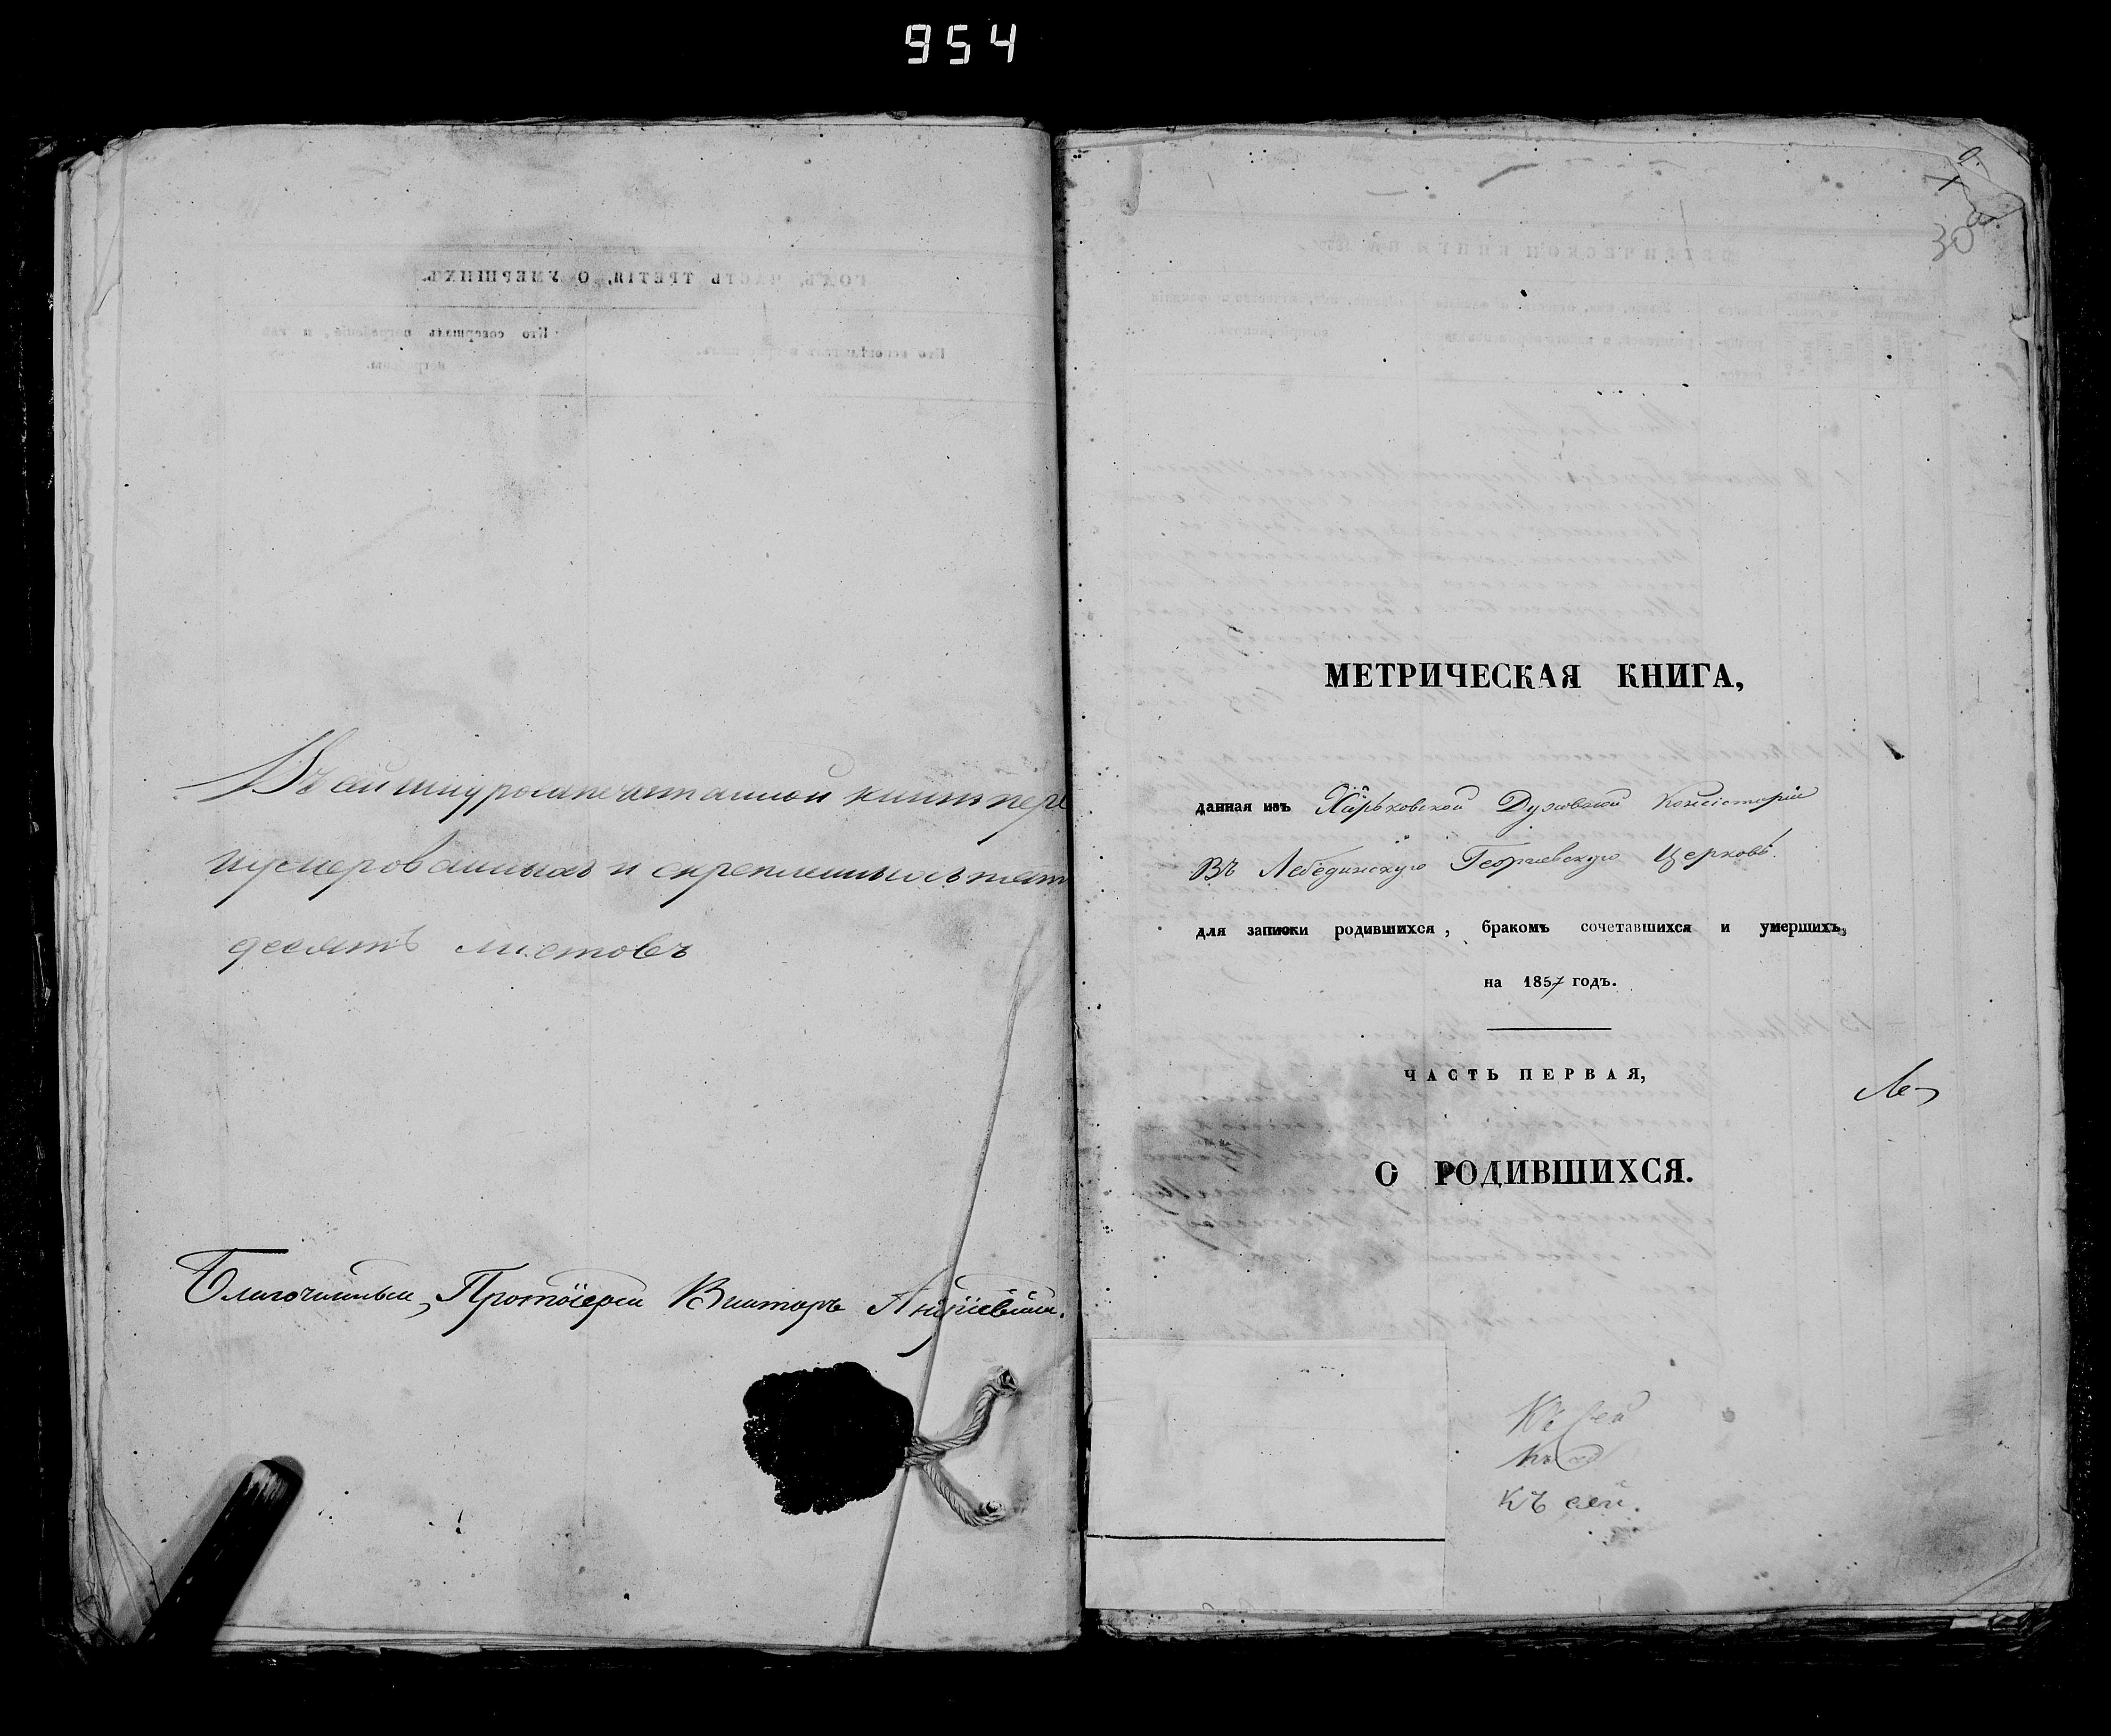 954
Въ сей шнурозапечатанной книгѣ пере
нумерованныхъ и скрепленныхъ пят
десятъ листовъ
Благочинный, Протоіерей Викторъ
30
МЕТРИЧЕСКАЯ КНИГА,
данная изъ Харьковской Духовной Консисторіи
Въ Лебединскую Георгіевскую Церковь.
для записки родившихся, бракомъ сочетавшихся и умершихъ,
на 1857 годъ.
ЧАСТЬ ПЕРВАЯ,
Ле
О РОДИВШИХСЯ.
Къ сей
Къ
Къ сей.